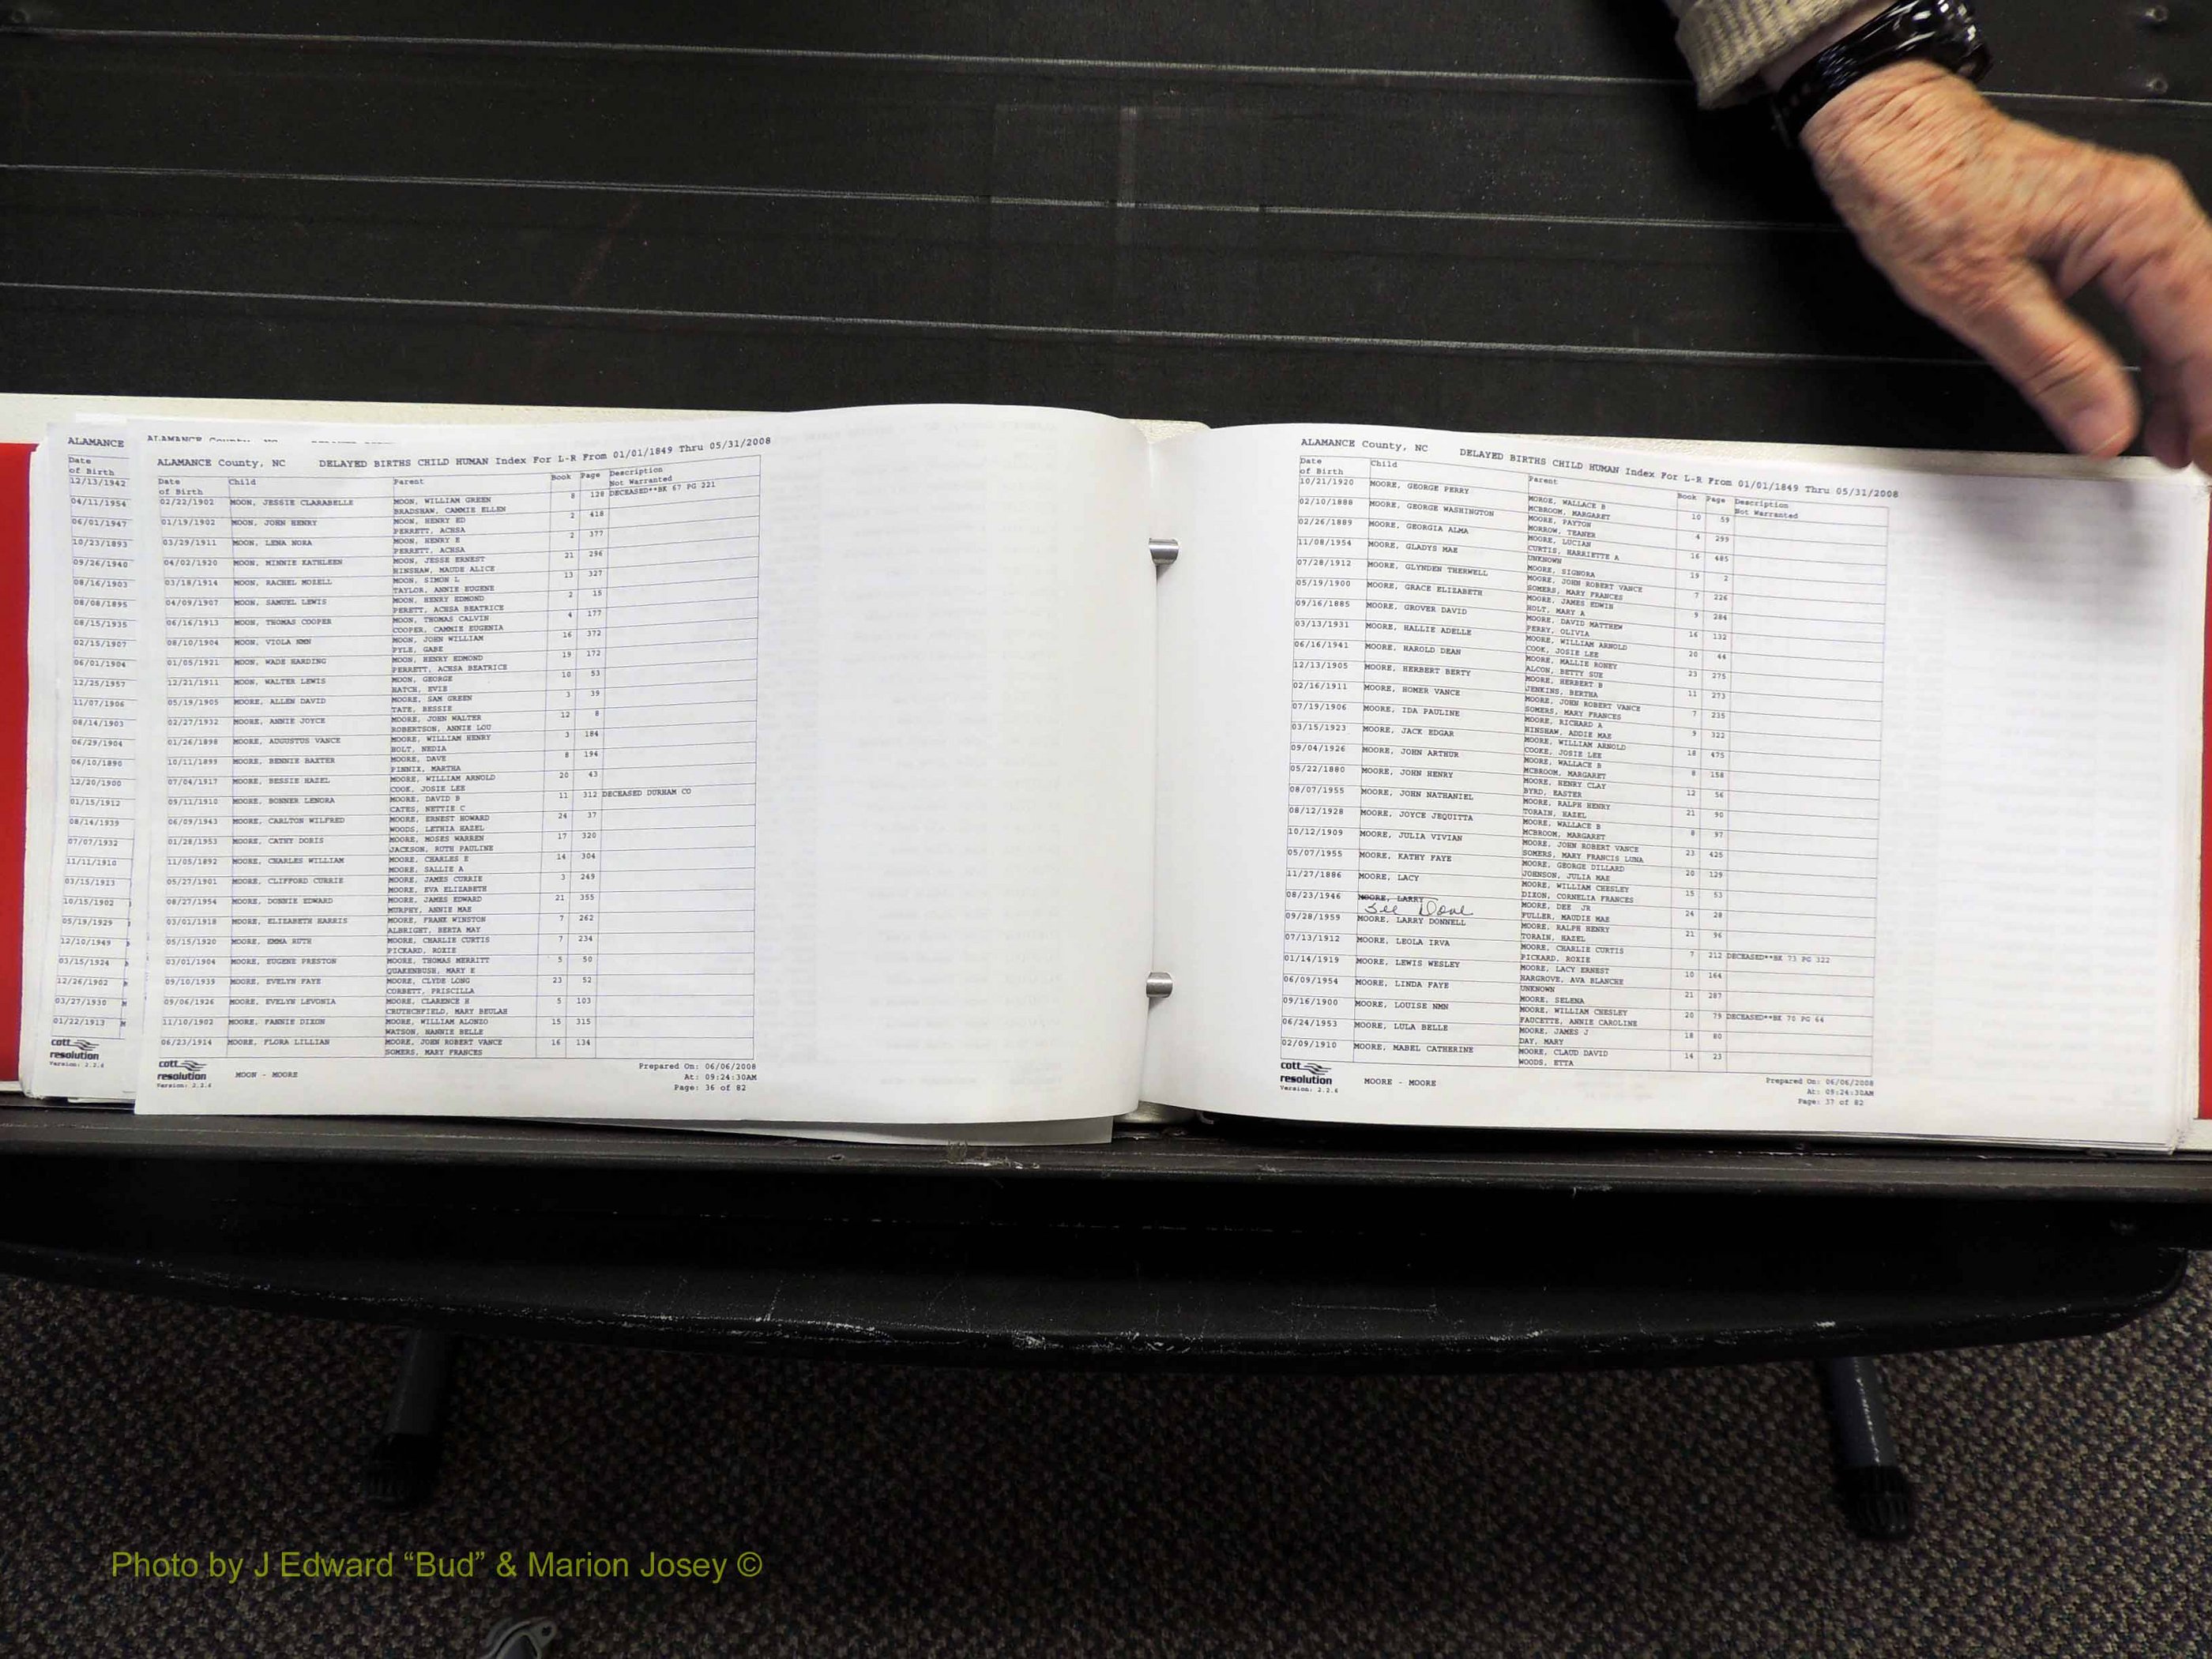 ALAMANCE
Date
of Birth
12/13/1942
04/11/1954
06/01/1947
10/23/1893
09/26/1940
08/16/1903
08/08/1895
08/15/1935
02/15/1907
06/01/1904
12/25/1957
11/07/1906
08/14/1903
06/29/1904
06/10/1890
12/20/1900
01/15/1912
08/14/1939
07/07/1932
11/11/1910
03/15/1913
10/15/1902
05/19/1929
12/10/1949
03/15/1924
12/26/1902
03/27/1930
01/22/1913
cott
resolution
Version: 2.2.6
ALAMANCE County, NC DELAYED BIRTHS CHILD HUMAN Index For L-R From 01/01/1849 Thru 05/31/2008
Date of Birth Child Parent Book Page Description
Not Warranted
02/22/1902 MOON, JESSIE CLARABELLE MOON, WILLIAM GREEN 8 128 DECEASED**BK 67 PG 221
BRADSHAW, CAMMIE ELLEN
01/19/1902 MOON, JOHN HENRY MOON, HENRY ED 2 418
PERRETT, ACHSA
03/29/1911 MOON, LENA NORA MOON, HENRY E 2 377
PERRETT, ACHSA
04/02/1920 MOON, MINNIE KATHLEEN MOON, JESSE ERNEST 21 296
HINSHAW, MAUDE ALICE
03/18/1914 MOON, RACHEL MOZELL MOON, SIMON L 13 327
TAYLOR, ANNIE EUGENE
04/09/1907 MOON, SAMUEL LEWIS MOON, HENRY EDMOND 2 15
PERETT, ACHSA BEATRICE
06/16/1913 MOON, THOMAS COOPER MOON, THOMAS CALVIN 4 177
COOPER, CAMMIE EUGENIA
08/10/1904 MOON, VIOLA NMN MOON, JOHN WILLIAM 16 372
PYLE, GABE
01/05/1921 MOON, WADE HARDING MOON, HENRY EDMOND 19 172
PERRETT, ACHSA BEATRICE
12/21/1911 MOON, WALTER LEWIS MOON, GEORGE 10 53
HATCH, EVIE
05/19/1905 MOORE, ALLEN DAVID MOORE, SAM GREEN 3 39
TATE, BESSIE
02/27/1932 MOORE, ANNIE JOYCE MOORE, JOHN WALTER 12 8
ROBERTSON, ANNIE LOU
01/26/1898 MOORE, AUGUSTUS VANCE MOORE, WILLIAM HENRY 3 184
HOLT, NEDIA
10/11/1899 MOORE, BENNIE BAXTER MOORE, DAVE 8 194
PINNIX, MARTHA
07/04/1917 MOORE, BESSIE HAZEL MOORE, WILLIAM ARNOLD 20 43
COOK, JOSIE LEE
09/11/1910 MOORE, BONNER LENORA MOORE, DAVID B 11 312 DECEASED DURHAM CO
CATES, NETTIE C
06/09/1943 MOORE, CARLTON WILFRED MOORE, ERNEST HOWARD 24 37
WOODS, LETHIA HAZEL
01/28/1953 MOORE, CATHY DORIS MOORE, MOSES WARREN 17 320
JACKSON, RUTH PAULINE
11/05/1892 MOORE, CHARLES WILLIAM MOORE, CHARLES E 14 304
MOORE, SALLIE A
05/27/1901 MOORE, CLIFFORD CURRIE MOORE, JAMES CURRIE 3 249
MOORE, EVA ELIZABETH
08/27/1954 MOORE, DONNIE EDWARD MOORE, JAMES EDWARD 21 355
MURPHY, ANNIE MAE
03/01/1918 MOORE, ELIZABETH HARRIS MOORE, FRANK WINSTON 7 262
ALBRIGHT, BERTA MAY
05/15/1920 MOORE, EMMA RUTH MOORE, CHARLIE CURTIS 7 234
PICKARD, ROXIE
03/01/1904 MOORE, EUGENE PRESTON MOORE, THOMAS MERRITT 5 50
QUAKENBUSH, MARY E
09/10/1939 MOORE, EVELYN FAYE MOORE, CLYDE LONG 23 52
CORBETT, PRISCILLA
09/06/1926 MOORE, EVELYN LEVONIA MOORE, CLARENCE H 5 103
CRUTCHFIELD, MARY BEULAH
11/10/1902 MOORE, FANNIE DIXON MOORE, WILLIAM ALONZO 15 315
WATSON, NANNIE BELLE
06/23/1914 MOORE, FLORA LILLIAN MOORE, JOHN ROBERT VANCE 16 134
SOMERS, MARY FRANCES
cott
resolution
Version: 2.2.6
MOON - MOORE
Prepared On: 06/06/2008
At: 09:24:30AM
Page: 36 of 82
ALAMANCE County, NC DELAYED BIRTHS CHILD HUMAN Index For L-R From 01/01/1849 Thru 05/31/2008
Date of Birth Child Parent Book Page Description
Not Warranted
10/21/1920 MOORE, GEORGE PERRY MOROE, WALLACE B 10 59
MCBROOM, MARGARET
02/10/1888 MOORE, GEORGE WASHINGTON MOORE, PAYTON 4 299
MORROW, TEANER
02/26/1889 MOORE, GEORGIA ALMA MOORE, LUCIAN 16 485
CURTIS, HARRIETTE A
11/08/1954 MOORE, GLADYS MAE UNKNOWN 19 2
MOORE, SIGNORA
07/28/1912 MOORE, GLYNDEN THERWELL MOORE, JOHN ROBERT VANCE 7 226
SOMERS, MARY FRANCES
05/19/1900 MOORE, GRACE ELIZABETH MOORE, JAMES EDWIN 9 284
HOLT, MARY A
09/16/1885 MOORE, GROVER DAVID MOORE, DAVID MATTHEW 16 132
PERRY, OLIVIA
03/13/1931 MOORE, HALLIE ADELLE MOORE, WILLIAM ARNOLD 20 44
COOK, JOSIE LEE
06/16/1941 MOORE, HAROLD DEAN MOORE, MALLIE RONEY 23 275
ALCON, BETTY SUE
12/13/1905 MOORE, HERBERT BERTY MOORE, HERBERT B 11 273
JENKINS, BERTHA
02/16/1911 MOORE, HOMER VANCE MOORE, JOHN ROBERT VANCE 7 235
SOMERS, MARY FRANCES
07/19/1906 MOORE, IDA PAULINE MOORE, RICHARD A 9 322
HINSHAW, ADDIE MAE
03/15/1923 MOORE, JACK EDGAR MOORE, WILLIAM ARNOLD 18 475
COOKE, JOSIE LEE
09/04/1926 MOORE, JOHN ARTHUR MOORE, WALLACE B 8 158
MCBROOM, MARGARET
05/22/1880 MOORE, JOHN HENRY MOORE, HENRY CLAY 12 56
BYRD, EASTER
08/07/1955 MOORE, JOHN NATHANIEL MOORE, RALPH HENRY 21 90
TORAIN, HAZEL
08/12/1928 MOORE, JOYCE JEQUITTA MOORE, WALLACE B 8 97
MCBROOM, MARGARET
10/12/1909 MOORE, JULIA VIVIAN MOORE, JOHN ROBERT VANCE 23 425
SOMERS, MARY FRANCIS LUNA
05/07/1955 MOORE, KATHY FAYE MOORE, GEORGE DILLARD 20 129
JOHNSON, JULIA MAE
11/27/1886 MOORE, LACY MOORE, WILLIAM CHESLEY 15 53
DIXON, CORNELIA FRANCES
08/23/1946 MOORE, LARRY MOORE, DEE JR 24 28
See Done FULLER, MAUDIE MAE
09/28/1959 MOORE, LARRY DONNELL MOORE, RALPH HENRY 21 96
TORAIN, HAZEL
07/13/1912 MOORE, LEOLA IRVA MOORE, CHARLIE CURTIS 7 212 DECEASED**BK 73 PG 322
PICKARD, ROXIE
01/14/1919 MOORE, LEWIS WESLEY MOORE, LACY ERNEST 10 164
HARGROVE, AVA BLANCHE
06/09/1954 MOORE, LINDA FAYE UNKNOWN 21 287
MOORE, SELENA
09/16/1900 MOORE, LOUISE NMN MOORE, WILLIAM CHESLEY 20 79 DECEASED**BK 70 PG 64
FAUCETTE, ANNIE CAROLINE
06/24/1953 MOORE, LULA BELLE MOORE, JAMES J 18 80
DAY, MARY
02/09/1910 MOORE, MABEL CATHERINE MOORE, CLAUD DAVID 14 23
WOODS, ETTA
cott
resolution
Version: 2.2.6
MOORE - MOORE
Prepared On: 06/06/2008
At: 09:24:30AM
Page: 37 of 82
Photo by J Edward “Bud” & Marion Josey ©